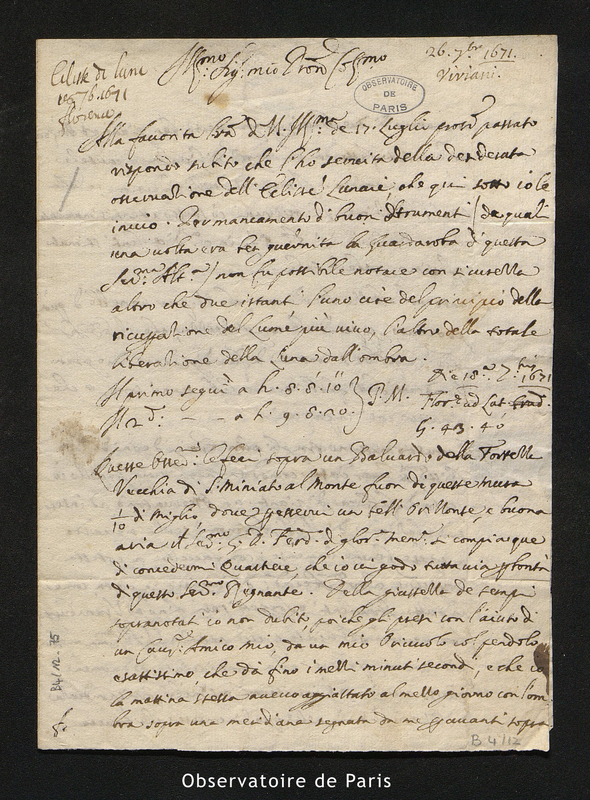 Eclisse di Luna
Firenze
Ill.mo Sig.r mio Pron Col.mo
26. 7bre 1671.
Viviani.
OBSERVATOIRE
DE
PARIS
Alla favorita di V. Ill.ma de 17. Luglio pross.o passato
rispondo subito che l'ho servita della desiderata
osservatione dell'Eclisse Lunare che qui sotto io le
invio. Per mancamento di buoni strumenti (de quali
una volta era ben guernita la Guardaroba di questa
Ser.ma Alt.a) non fu possibile notare con sicurezza
altro che due istanti l'uno cioè del principio della
ricuperatione del Lume più vivo, l'altro della totale
liberatione della Luna dall'ombra.
Il primo seguì a h. 8. 8. 10
Il 2.do - - a h. 9. 8. 20.
P.M.
Die 18.a 7bris 1671
Flor.ae ad Lat. Grad.
G. 43. 40
Queste Osser.ni le feci sopra un Baluardo della Fortezza
Vecchia di S. Miniato al Monte fuori di queste mura
1/10 di miglio dove per esservi un bell'Orizzonte, e buona
aria il Ser.mo G. D. Ferd. di glor. mem. si compiacque
di concedermi Quartiere, che io vi godo tuttavia
di questo Ser.mo Regnante. Della giustezza de tempi
sopranotati io non dubito, poiche gli presi con l'aiuto di
un Amico mio, da un mio Oriuolo col pendolo
esattissimo che da fino i mezzi minuti secondi, e che io
la mattina stessa avevo aggiustato al mezzo giorno con l'om-
bra sopra una meridiana segnata da me sopra
B4/12. 75
B 4/12
Observatoire de Paris